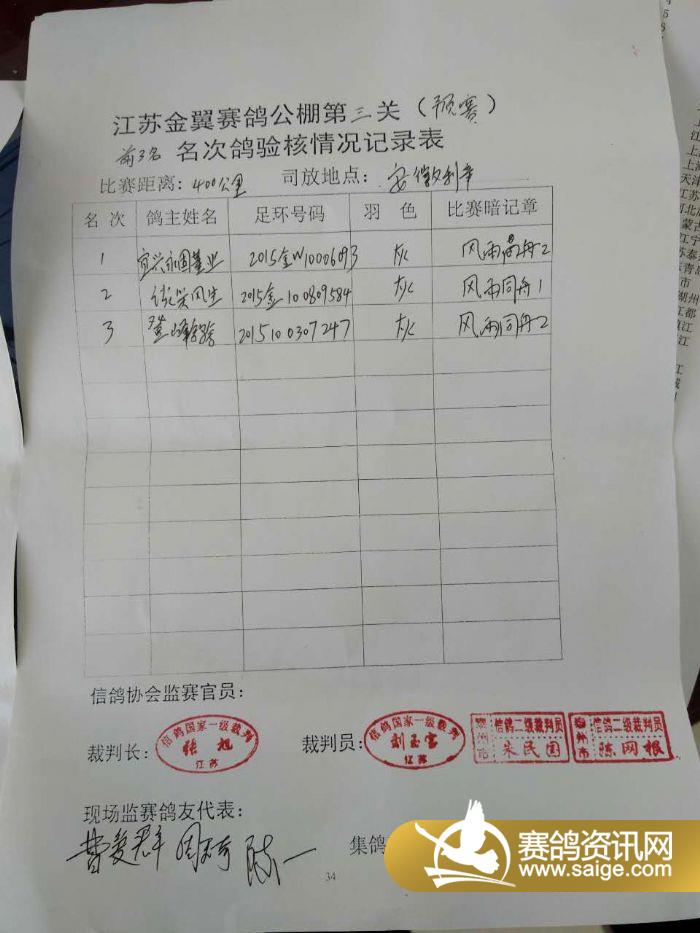 江苏金翼赛鸽公棚第三关(预赛)
前3名 名次鸽验核情况记录表
比赛距离:400公里 司放地点:安徽利辛
名次 鸽主姓名 足环号码 羽色 比赛暗记章
1 宜兴永固基业 2015金W10006093 灰 风雨同舟2
2 笑风生 2015金100809584 灰 风雨同舟1
3 登峰 2015100307247 灰 风雨同舟2
信鸽协会监赛官员:
裁判长: 信鸽国家一级裁判 张旭 江苏 裁判员: 信鸽国家一级裁判 刘玉宫 江苏 泰州市 信鸽二级裁判员 朱民国 泰州市 信鸽二级裁判员 陈网根
现场监赛鸽友代表:
集鸽
陈一
34
赛鸽资讯网
www.saige.com